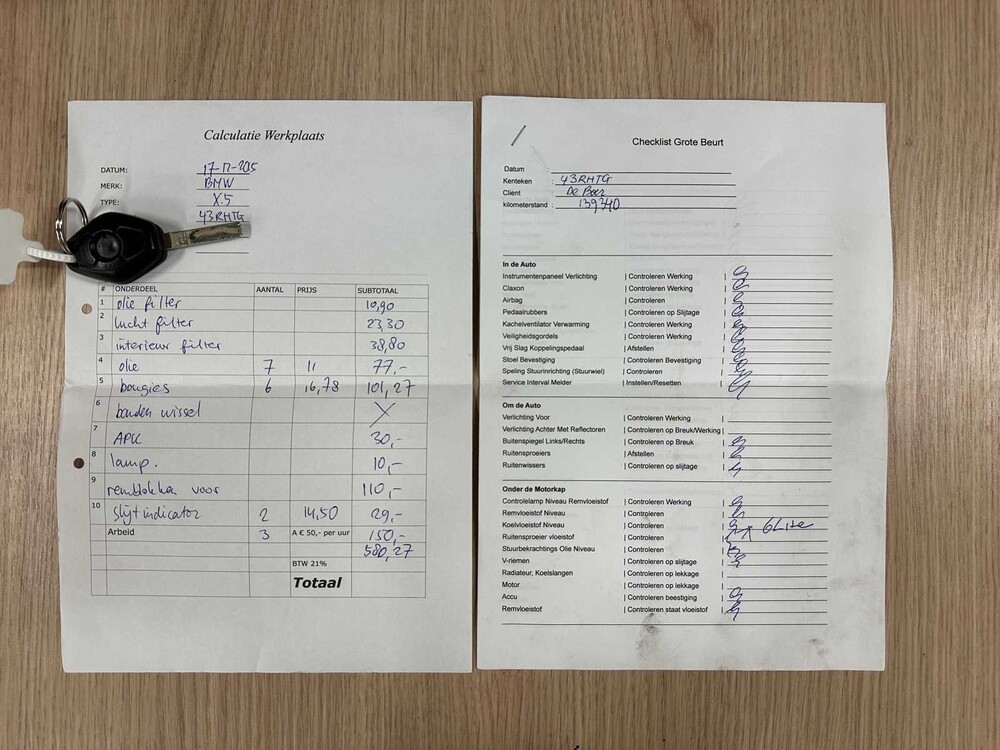 Calculatie Werkplaats
DATUM: 17-12-2015
MERK: BMW
TYPE: X.5
43RHTG
# ONDERDEEL AANTAL PRIJS SUBTOTAAL
1 olie filter 10,90
2 lucht filter 23,30
3 interieur filter 38,80
4 olie 7 11 77,-
5 bougies 6 16,78 101,27
6 banden wissel X
7 APK 30,-
8 lamp. 10,-
9 remblokken voor 110,-
10 slijt indicator 2 14,50 29,-
Arbeid 3 A € 50,- per uur 150,-
580,27
BTW 21%
Totaal
Checklist Grote Beurt
Datum :
Kenteken : 43RHTG
Client : De Boer
kilometerstand : 139740
In de Auto
Instrumentenpaneel Verlichting | Controleren Werking
Claxon | Controleren Werking
Airbag | Controleren
Pedaalrubbers | Controleren op Slijtage
Kachelventilator Verwarming | Controleren Werking
Veiligheidsgordels | Controleren Werking
Vrij Slag Koppelingspedaal | Afstellen
Stoel Bevestiging | Controleren Bevestiging
Speling Stuurinrichting (Stuurwiel) | Controleren
Service Interval Melder | Instellen/Resetten
Om de Auto
Verlichting Voor | Controleren Werking
Verlichting Achter Met Reflectoren | Controleren op Breuk/Werking
Buitenspiegel Links/Rechts | Controleren op Breuk
Ruitensproeiers | Afstellen
Ruitenwissers | Controleren op slijtage
Onder de Motorkap
Controlelamp Niveau Remvloeistof | Controleren Werking
Remvloeistof Niveau | Controleren
Koelvloeistof Niveau | Controleren 6 Liter
Ruitensproeier vloeistof | Controleren
Stuurbekrachtings Olie Niveau | Controleren
V-riemen | Controleren op slijtage
Radiateur, Koelslangen | Controleren op lekkage
Motor | Controleren op lekkage
Accu | Controleren beestiging
Remvloeistof | Controleren staat vloeistof